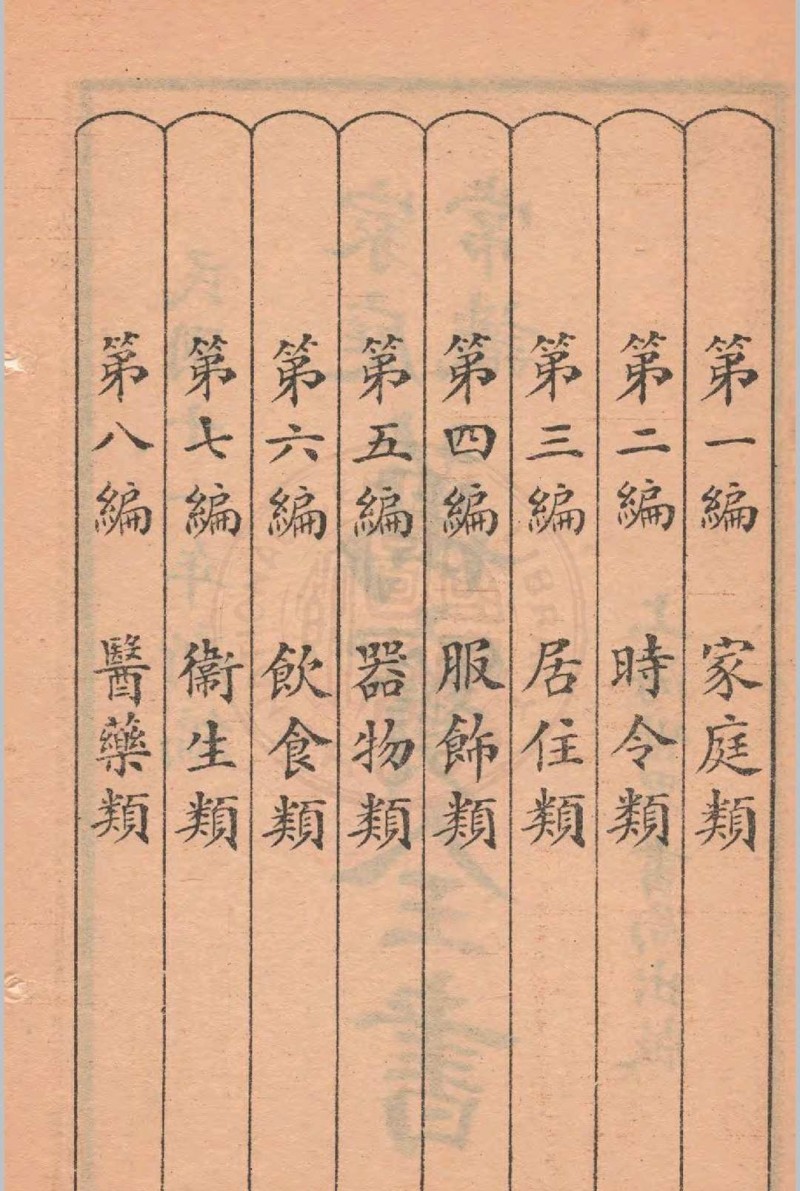 第一編 家庭類
第二編 時令類
第三編 居住類
第四編 服飾類
第五編 器物類
第六編 飲食類
第七編 衞生類
第八編 醫藥類